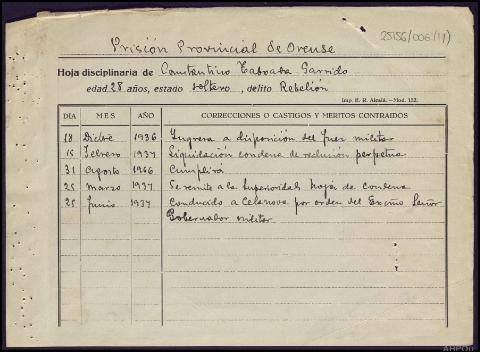 25156/006 (11)
Prisión Provincial de Orense
Hoja disciplinaria de Constantino Taboada Garrido
edad 28 años, estado soltero, delito Rebelión
Imp. E. R. Alcalá.—Mod. 132.
DIA MES AÑO CORRECCIONES O CASTIGOS Y MERITOS CONTRAIDOS
18 Dicbre 1936 Ingresa a disposición del Juez militar
15 Febrero 1937 Liquidación condena de reclusión perpetua
31 Agosto 1966 Cumplirá
25 Marzo 1937 Se remite a la Superioridad hoja de condena
25 Junio 1937 Conducido a Celanova por orden del Excmo Señor
Gobernador militar
AHPOu